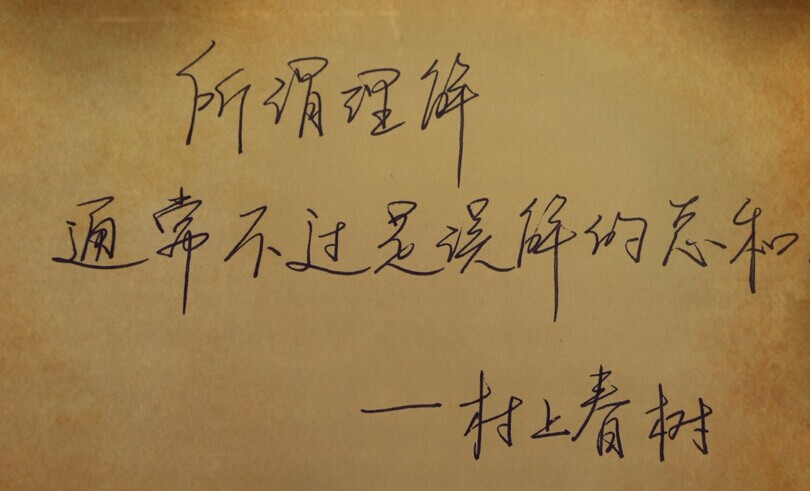 所谓理解
通常不过是误解的总和.
—村上春树